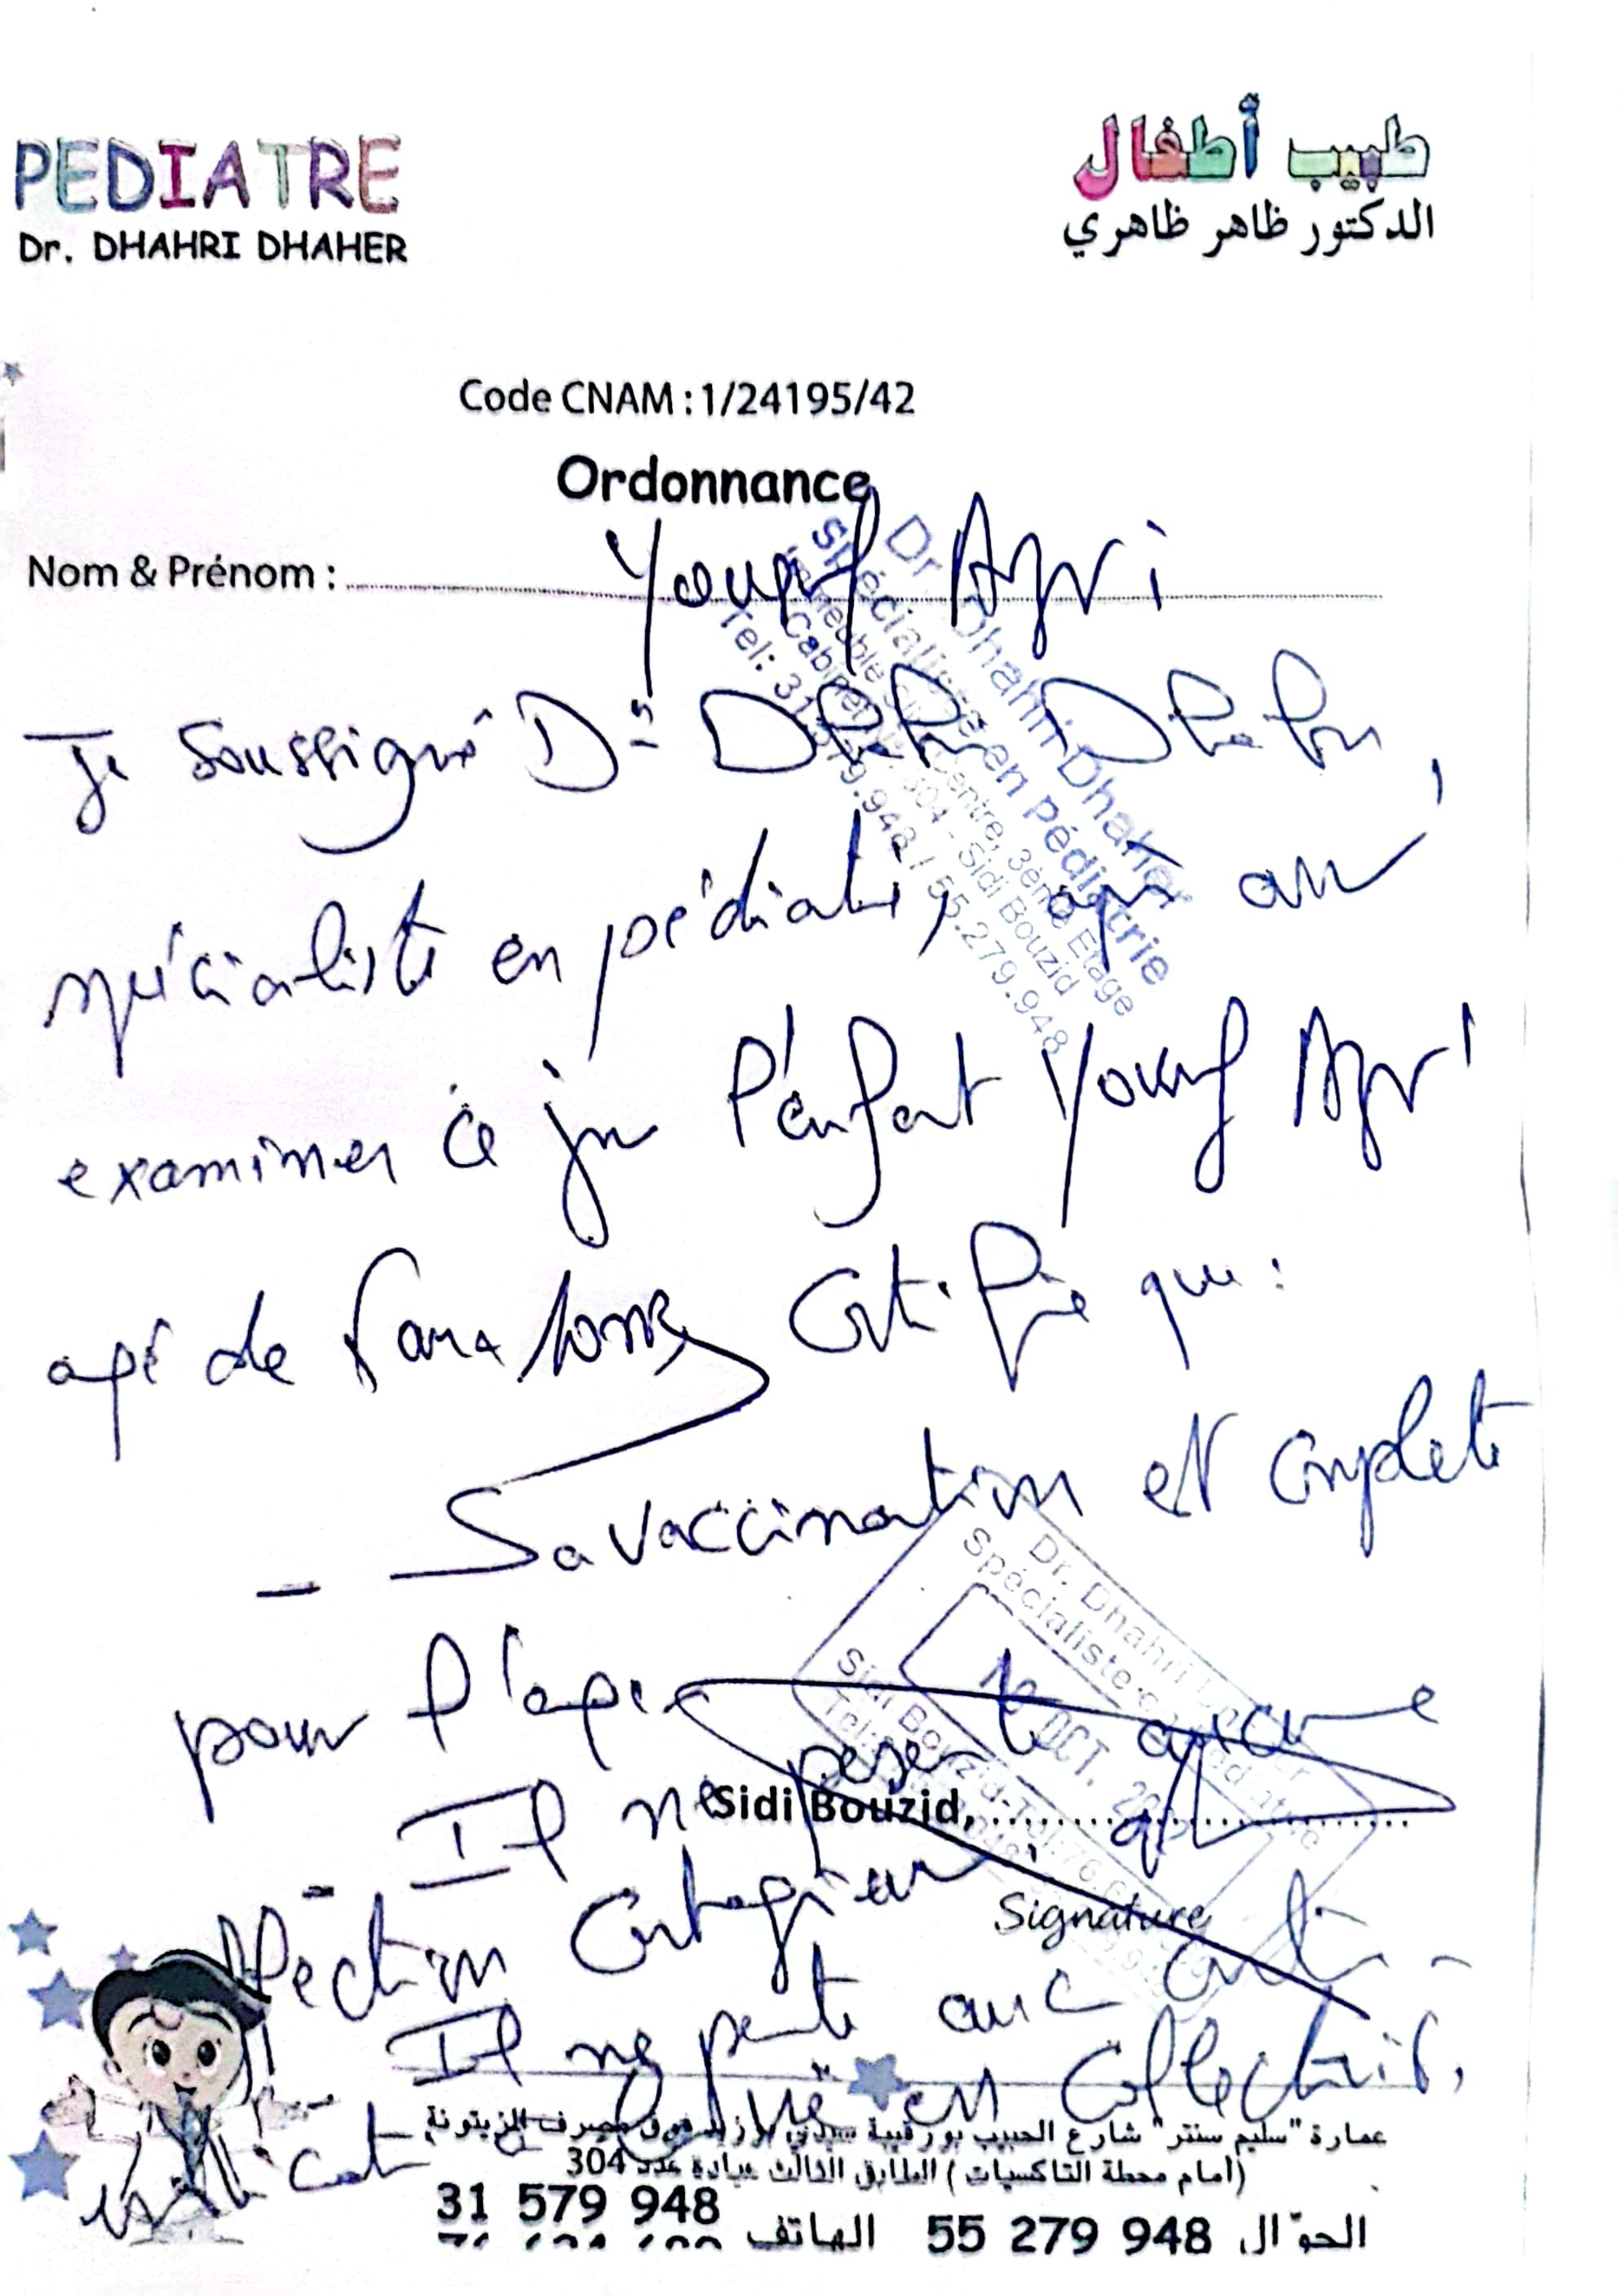 PEDIATRE
Dr. DHAHRI DHAHER
طبيب أطفال
الدكتور ظاهر ظاهري
Code CNAM : 1/24195/42
Ordonnance
Nom & Prénom :
Dr. Dhahri Dhaher
Spécialiste en Pédiatrie
Centre, 3ème Etage
Cabinet 304 - Sidi Bouzid
Tel: 31.579.948 / 55.279.948
Je soussigné Dr Dhahri Dhaher,
spécialiste en pédiatrie, après avoir
examiner ce jour l'enfant
agé de certifie que :
- Sa vaccination est complete
pour l'age
- Il ne presente aucune
affection contagieuse
- Il ne presente aucune contre-
indication à la vie en collectivité.
Dr. Dhahri Dhaher
Spécialiste en Pédiatrie
OCT.
Sidi Bouzid-Tel:76.
Sidi Bouzid,
Signature
عمارة "سليم سنتر" شارع الحبيب بورقيبة سيدي بوزيد فوق مصرف الزيتونة
(أمام محطة التاكسيات) الطابق الثالث عيادة عدد 304
31 579 948
الهاتف
الحوّال 55 279 948